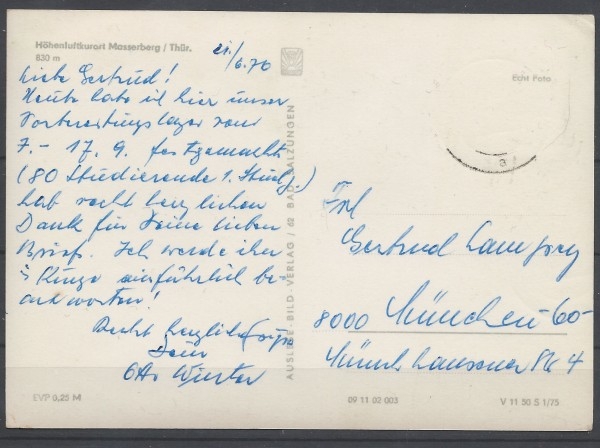 Höhenluftkurort Masserberg / Thür.
830 m
21./6.76
Liebe Gertrud!
Heute habe ich hier unser
Vorbereitungslager vom
7. - 17. 9. festgemacht
(80 Studierende 1. Stud.j.)
hab recht herzlichen
Dank für Deine lieben
Brief. Ich werde ihn
in Kürze ausführlich be-
antworten!
Recht herzlich
Dein
Otto
AUSLESE-BILD-VERLAG / BAD SALZUNGEN
Echt Foto
Frl
Gertrud
8000 München 60
4
EVP 0,25 M
09 11 02 003
V 11 50 S 1/75